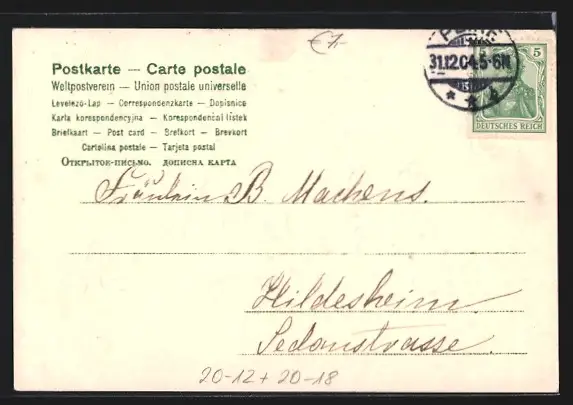 €7-
PEINE
31.12.04.5-6N
5
DEUTSCHES REICH
Postkarte — Carte postale
Weltpostverein — Union postale universelle
Levelező-Lap — Correspondenzkarte — Dopisnice
Karta korespondencyjna — Korespondenční lístek
Briefkaart — Post card — Brefkort — Brevkort
Cartolina postale — Tarjeta postal
Открытое-письмо. дописна карта
Fräulein B. Machens.
Hildesheim
Sedanstrasse.
20-12 + 20-18